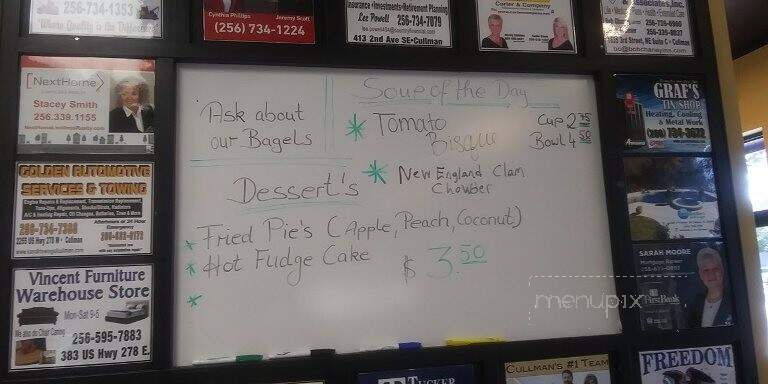 256-734-1353
Where Quality is the Difference
Cynthia Phillips
Jeremy Scott
(256) 734-1224
Insurance • Investments • Retirement Planning
Lee Powell 256-734-7079
413 2nd Ave SE • Cullman
Carter & Company
Associates, Inc.
NextHome
Stacey Smith
256.339.1155
GOLDEN AUTOMOTIVE
SERVICES & TOWING
256-734-7388
2255 US Hwy 278 W • Cullman
Vincent Furniture
Warehouse Store
Mon-Sat 9-6
We also do Chair Caning
256-595-7883
383 US Hwy 278 E.
Ask about
our Bagels
Soup of the Day
Tomato
Bisque
Cup 2.75
Bowl 4.50
New England Clam
Chowber
Dessert's
Fried Pie's (Apple, Peach, Coconut)
Hot Fudge Cake
$ 3.50
menupix
GRAF'S
TIN SHOP
Heating, Cooling
& Metal Work
(256) 734-3672
SARAH MOORE
Mortgage Banker
FirstBank
TUCKER
CULLMAN'S #1 TEAM
FREEDOM